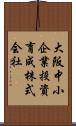 大阪中小
企業投資
育成株式
会社